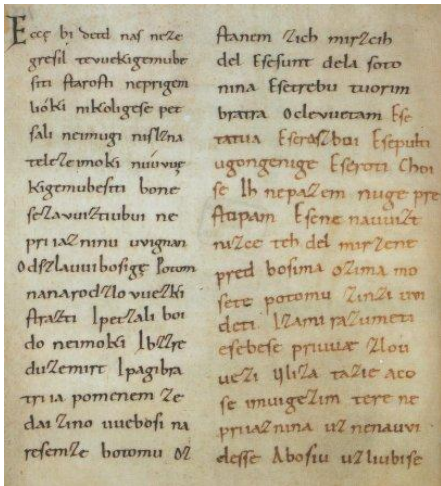 Eccę bi detd naſ neze
greſil tevuekigemube
ſiti ſtaroſti neprigem
lióki nikoligeſe pet
ſali neimugi niſlzna
telezeimoki nuúvuę
kigemubeſiti bone
ſezavuiztiubui ne
priiazninu uvignan
Odſzlauuiboſigę Potom
nanarodzlovuezki
ſtrazti Ipetzali boi
do neimoki Ibzzre
duzemirt Ipagibra
triia pomenem ze
dai zino uueboſi na
reſemze botomu Oz
ſtanem zich mirzcih
del Eſeſunt dela ſoto
nina Eſetrebu tuorim
bratra Oclevuetam Eſe
tatua Eſerazboi Eſepulti
ugongenige Eſeroti Choi
ſe Ih nepazem nuge pre
ſtopam Eſene nauuizt
nazce teh del mirzene
pred boſima ozima mo
ſete potomu zinzi uvi
deti Izami razumeti
eſebeſe priuuæ zlou
uezi Uliza tazie aco
ſe imuigezim tere ne
priiaznina uz nenauvi
deſſe Aboſiu uzliubiſe